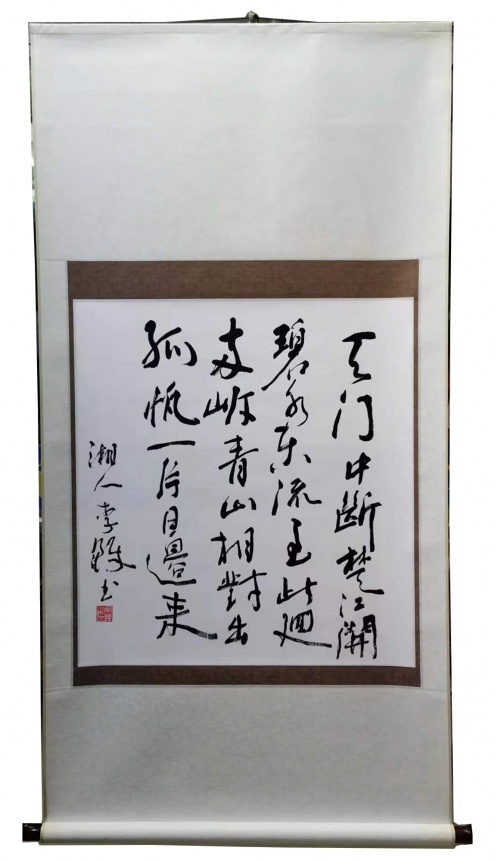 天门中斷楚江開
碧水东流至此廻
兩岸青山相對出
孤帆一片日邊来
湘人李毅书